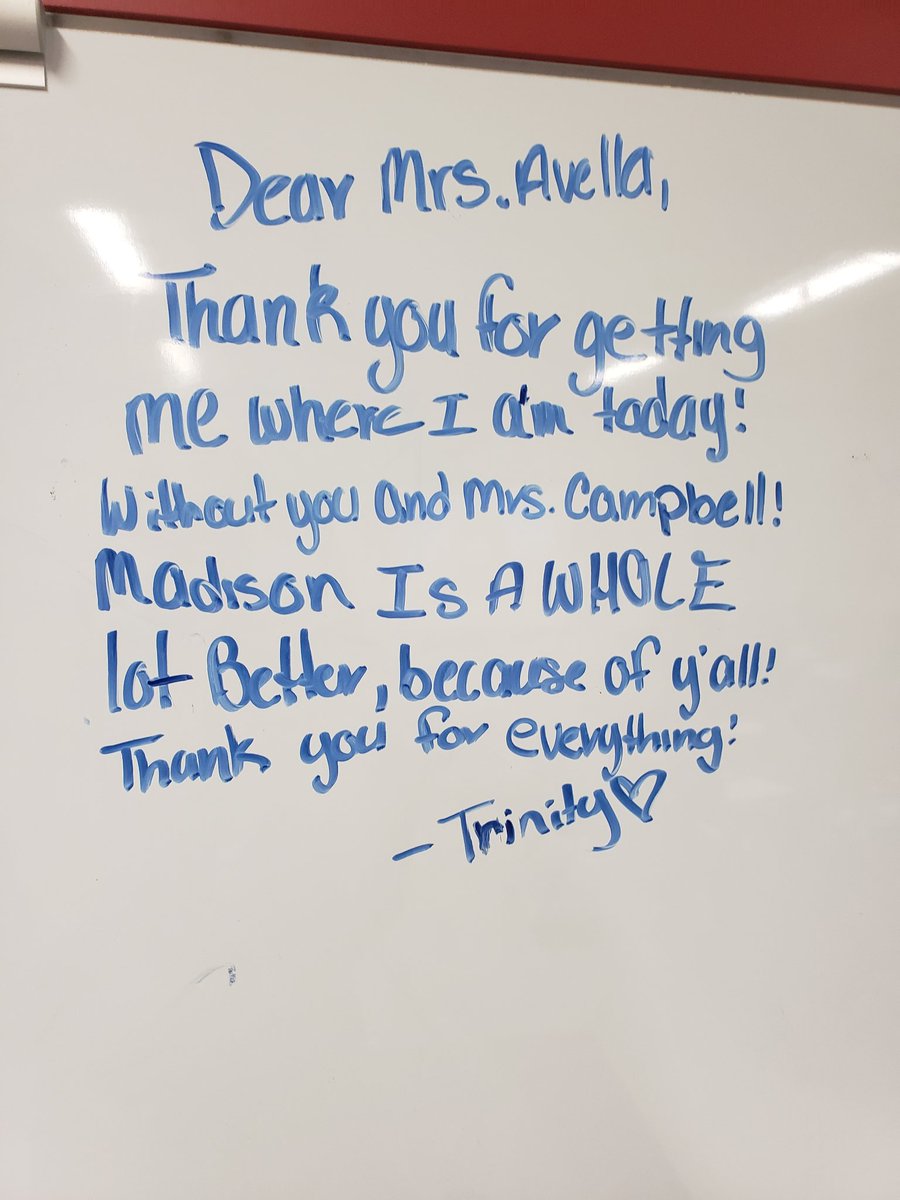 Dear Mrs. Avella,
Thank you for getting
me where I am today!
Without you and Mrs. Campbell!
Madison Is A WHOLE
lot Better, because of y'all!
Thank you for everything!
- Trinity♡